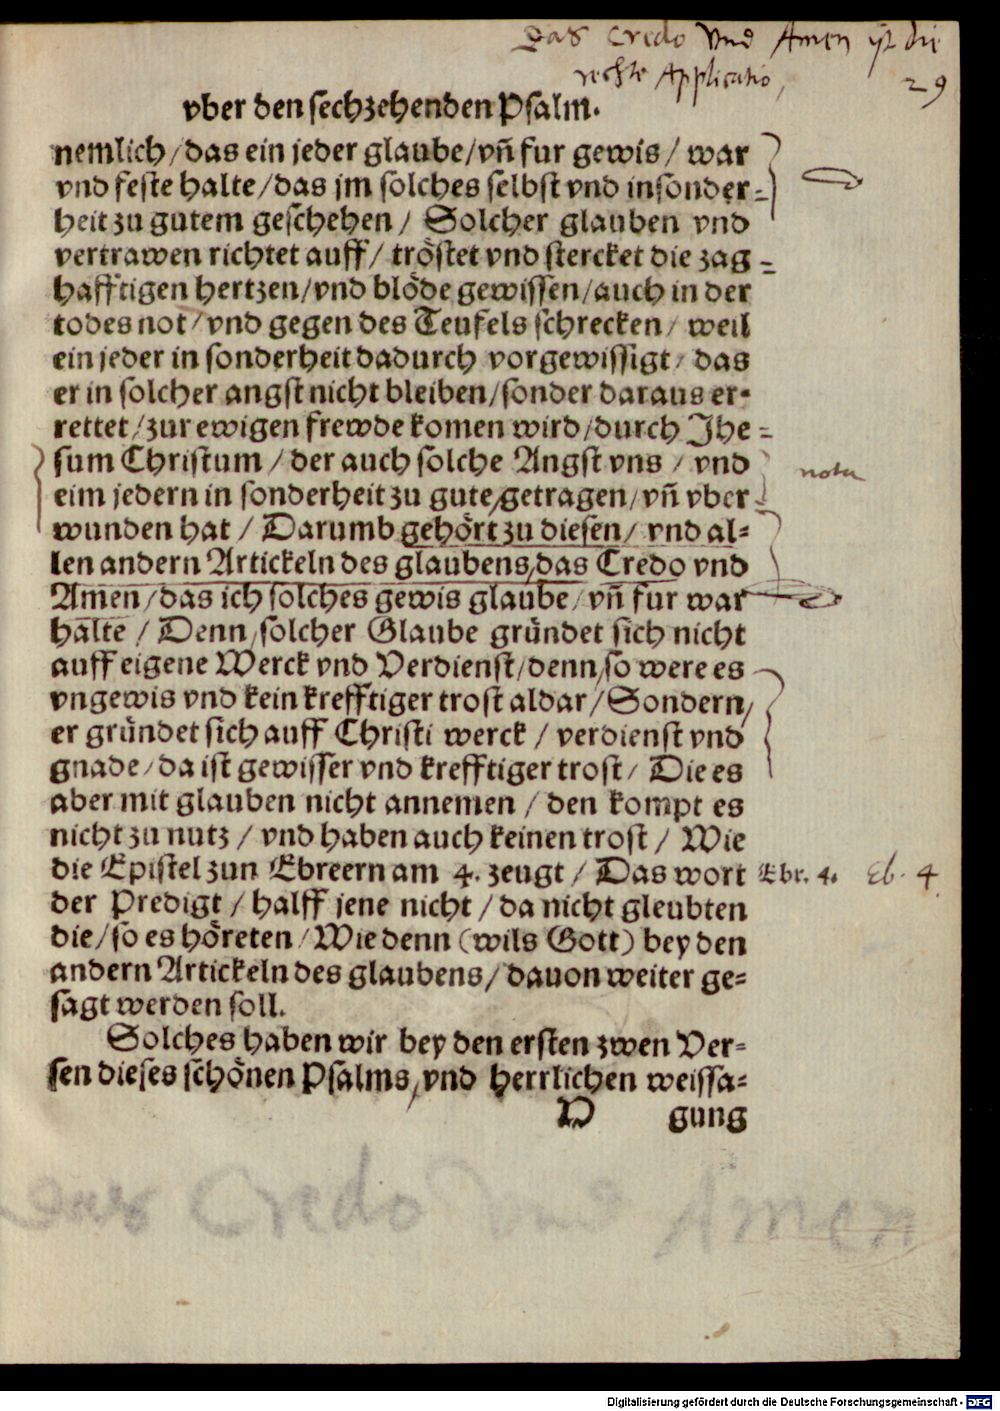 Das Credo Vnd Amen ist die
rechte Applicatio,
29
vber den sechzehenden Psalm.
nemlich/das ein jeder glaube/vñ fur gewis/ war
vnd feste halte/das jm solches selbst vnd insonder-
heit zu gutem geschehen/ Solcher glauben vnd
vertrawen richtet auff/ tröstet vnd stercket die zag-
hafftigen hertzen/vnd blöde gewissen/auch in der
todes not/vnd gegen des Teufels schrecken/ weil
ein jeder in sonderheit dadurch vorgewissigt/ das
er in solcher angst nicht bleiben/sonder daraus er-
rettet/zur ewigen frewde komen wird/durch Jhe-
sum Christum/der auch solche Angst vns/vnd
nota
eim jedern in sonderheit zu gute/getragen/vñ vber-
wunden hat/ Darumb gehört zu diesen/ vnd al-
len andern Artickeln des glaubens/das Credo vnd
Amen/das ich solches gewis glaube/vñ fur war
halte/ Denn/solcher Glaube gründet sich nicht
auff eigene Werck vnd Verdienst/denn/so were es
vngewis vnd kein krefftiger trost aldar/Sondern/
er gründet sich auff Christi werck/ verdienst vnd
gnade/da ist gewisser vnd krefftiger trost/ Die es
aber mit glauben nicht annemen/den kompt es
nicht zu nutz/vnd haben auch keinen trost/ Wie
die Epistel zun Ebreern am 4. zeugt/ Das wort Ebr. 4. Eb. 4.
der Predigt/halff jene nicht/da nicht gleubten
die/so es höreten/Wie denn (wils Gott) bey den
andern Artickeln des glaubens/dauon weiter ge-
sagt werden soll.
Solches haben wir bey den ersten zwen Ver-
sen dieses schönen Psalms/vnd herrlichen weissa-
gung
Das Credo Vnd Amen
Digitalisierung gefördert durch die Deutsche Forschungsgemeinschaft - DFG